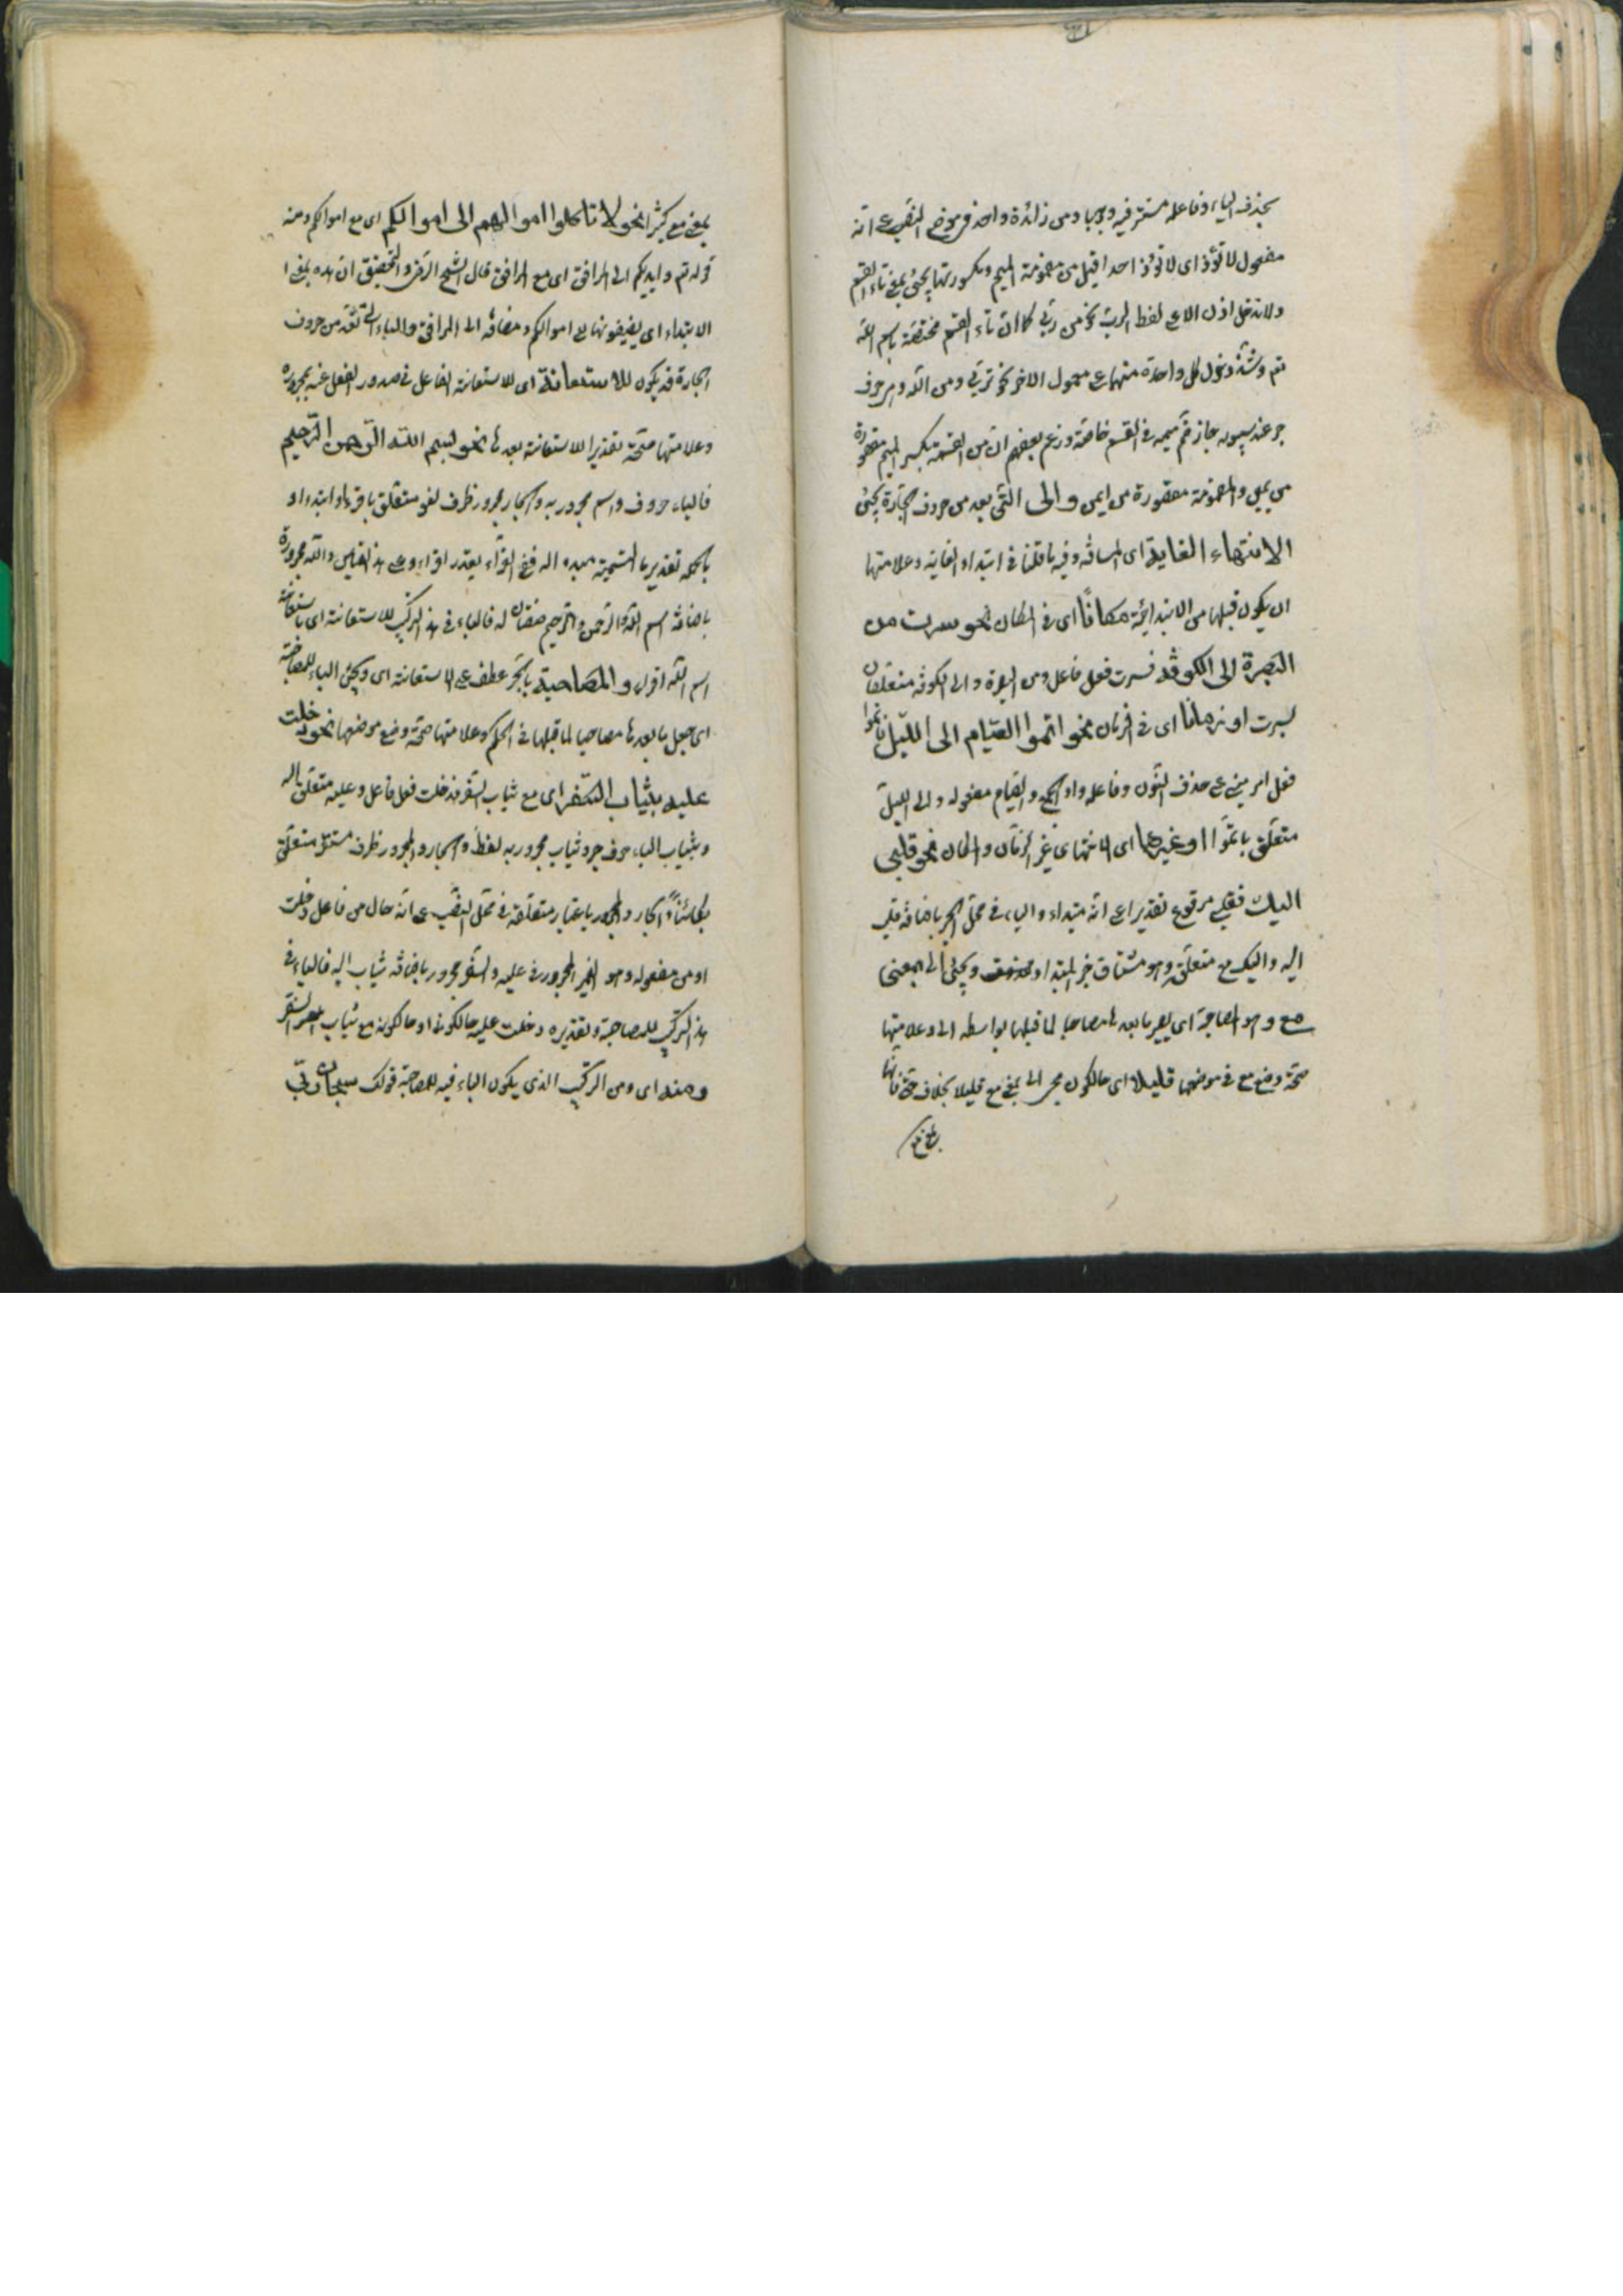 بحذف الياء وفاعله مستتر فيه وجوبا ومن زائدة واحد في موضع النصب على انه
مفعول لا تؤذ اى لا تؤذ احدا قيل من مضمومة الميم ومكسورتها يجئ بمعنى تاء القسم
ولا تدخل اذن الا على لفظ الرب نحو من ربى كما ان تاء القسم مختصة باسم الله
تعم وشذ دخول كل واحدة منهما على معمول الاخر نحو تربى ومن الله و حرف
جر عند سيبويه جاز ضم ميمه فى القسم خاصة وزعم بعضهم ان من القسمية بكسر الميم مقصورة
من يمين والمضمومة مقصورة من ايمن والى التى بعد من حروف الجارة يجئ
الانتهاء الغاية اى المسافة وفيه ما قلنا فى ابتداء الغاية وعلامتها
ان يكون قبلها من الابتدائية مكانا اى فى المكان نحو سرت من
البصرة الى الكوفة فسرت فعل فاعل ومن البصرة والى الكوفة متعلقان
لسرت او زمانا اى فى الزمان نحو اتموا الصيام الى الليل فاتموا
فعل امر مبنى على حذف النون وفاعله واو الجمع والصيام مفعوله والى الليل
متعلق باتموا او غيرهما اى الانتهاء فى غير الزمان والمكان نحو قلبى
اليك فقلبى مرفوع تقديرا على انه مبتداء والياء فى محل الجر باضافة قلب
اليه واليك مع متعلقه وهو مشتاق خبر المبتداء ويجئ الى بمعنى
مع وهو المصاحبة اى يصير ما بعدها مصاحبا لما قبلها بواسطة الى وعلامتها
صحة وضع مع فى موضعها قليلا اى حالكون مجئ الى بمعنى مع قليلا بخلاف حتى فانها
بمعنى مع
بمعنى مع كثيرا نحو لا تاكلوا اموالهم الى اموالكم اى مع اموالكم ومنه
قوله تعم وايديكم الى المرافق اى مع المرافق قال الشيخ الرضى والتحقيق ان هذه بمعنى ا
الابتداء اى يضيفونها الى اموالكم ومضافة الى المرافق والباء التى تعد من حروف
الجارة قد يكون للاستعانة اى للاستعانة الفاعل فى صدور الفعل عنه بمجروره
وعلامتها صحة تقدير الاستعانة بعدها نحو بسم الله الرحمن الرحيم
فالباء حرف واسم مجرور به والجار مجرور ظرف لغو متعلق باقرء او ابتداء او
باضافة اسم الله والرحمن والرحيم صفتان له فالباء فى هذا التركيب للاستعانة اى باستعانة
اسم الله اقرء والمصاحبة بالجر عطف على الاستعانة اى ويجئ الباء للمصاحبة
اى جعل ما بعدها مصاحبا لما قبلها فى الحكم وعلامتها صحة وضع مع موضعها نحو دخلت
عليه بثياب السفر اى مع ثياب السفر فدخلت فعل فاعل وعليه متعلق له
وبثياب الباء حرف جر وثياب مجرور به لفظا والجار والمجرور ظرف مستقر متعلق
بكائنا والجار والمجرور باعتبار متعلقه فى محل النصب على انه حال من فاعل دخلت
او من مفعوله وهو الضمير المجرور فى عليه والسفر مجرور باضافة ثياب اليه فالباء فى
هذا التركيب للمصاحبة وتقديره دخلت عليه حالكونى او حالكونه مع ثياب السفر
ومنه اى ومن التركيب الذى يكون الباء فيه للمصاحبة قولك سبحان ربى